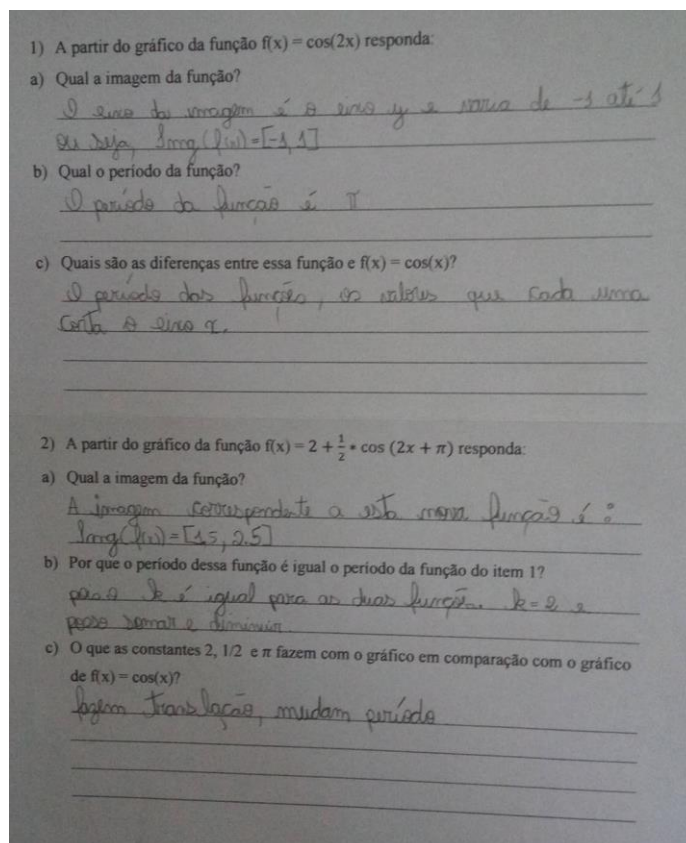 1) A partir do gráfico da função f(x) = cos(2x) responda:
a) Qual a imagem da função?
O eixo da imagem é o eixo y e varia de -1 até 1
ou seja, Img(f(x))=[-1,1]
b) Qual o período da função?
O período da função é π
c) Quais são as diferenças entre essa função e f(x) = cos(x)?
O período das funções, os valores que cada uma
corta o eixo x.
2) A partir do gráfico da função f(x) = 2 + 1/2 * cos (2x + π) responda:
a) Qual a imagem da função?
A imagem correspondente a esta nova função é:
Img(f(x))=[1.5, 2.5]
b) Por que o período dessa função é igual o período da função do item 1?
k é igual para as duas funções. k=2 e
posso somar e diminuir.
c) O que as constantes 2, 1/2 e π fazem com o gráfico em comparação com o gráfico
de f(x) = cos(x)?
fazem translação, mudam período